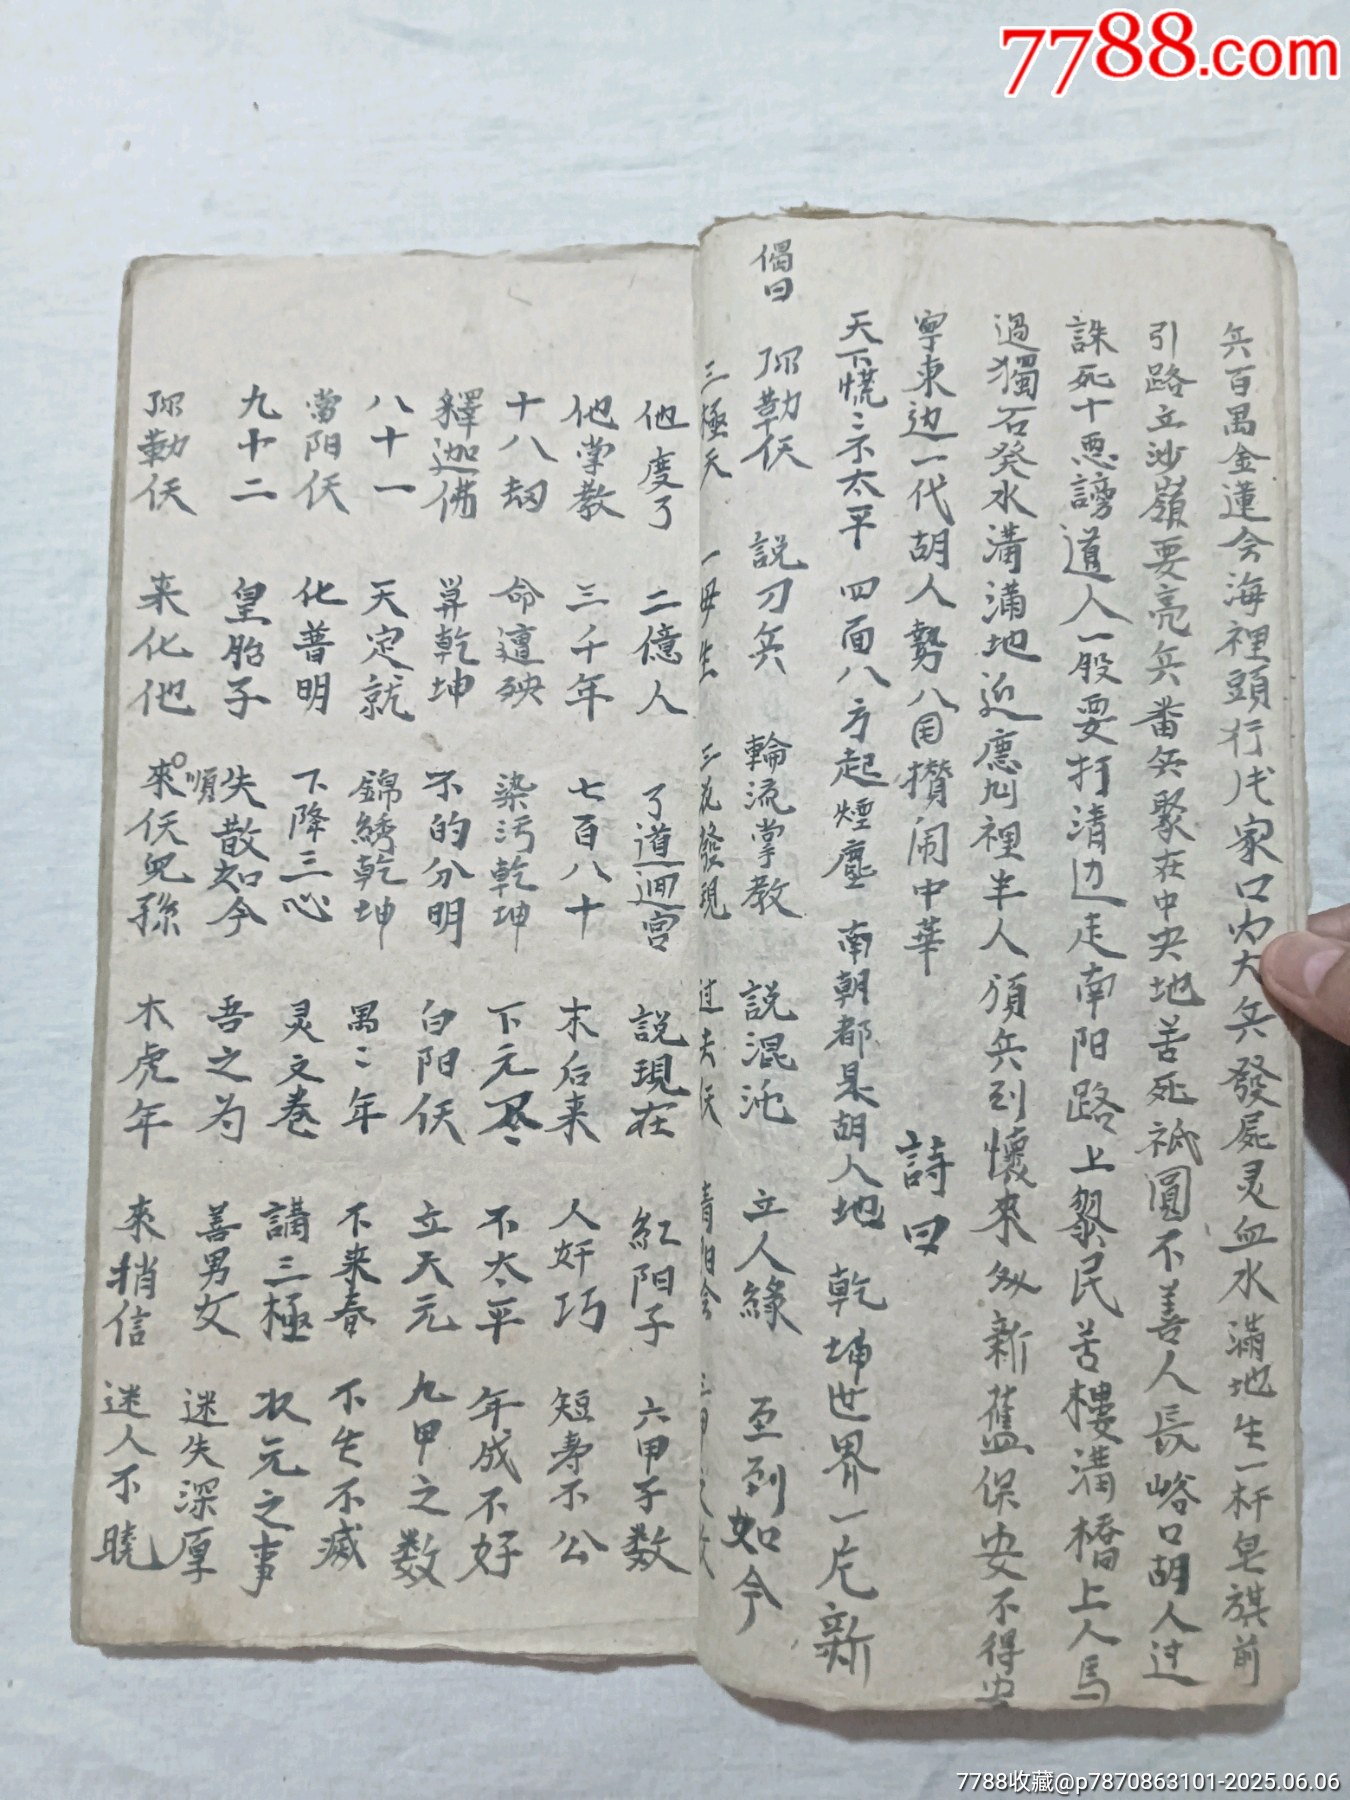 7788.com
兵百萬金蓮会海裡頭行戌家口内大兵發屍灵血水滿地生一杆皂旗前
引路立沙嶺要亮兵番兵聚在中央地苦死祗圓不善人長峪口胡人过
誅死十惡謗道人一股要打清边走南阳路上黎民苦樓溝橋上人馬
過獨石癸水溝滿地近應尅裡半人須兵到懷來
新舊保安不得安
寧東边一代胡人勢八国攢闹中華
詩曰
天下慌〻不太平 四面八方起煙塵 南朝都是胡人地 乾坤世界一片新
偈曰 弥勒佛 說刀兵 輪流掌教 說混沌 立人緣 至到如今
三極天 一母生 三花發現 过去佛 青阳会
他度了 二億人 了道迴宫 說現在 紅阳子 六甲子数
他掌教 三千年 七百八十 末后来 人奸巧 短寿不公
十八劫 命遭殃 染污乾坤 下元 不太平 年成不好
釋迦佛 算乾坤 不的分明 白阳佛 立天元 九甲之数
八十一 天定就 錦綉乾坤 萬〻年 不来春 不生不滅
當阳佛 化普明 下降三心 灵文卷 講三極 状元之事
九十二 皇胎子 失散如今 吾之为 善男女 迷失深厚
順
弥勒佛 来化他 來佛兒孫 木虎年 来捎信 迷人不曉
7788收藏@p7870863101-2025.06.06